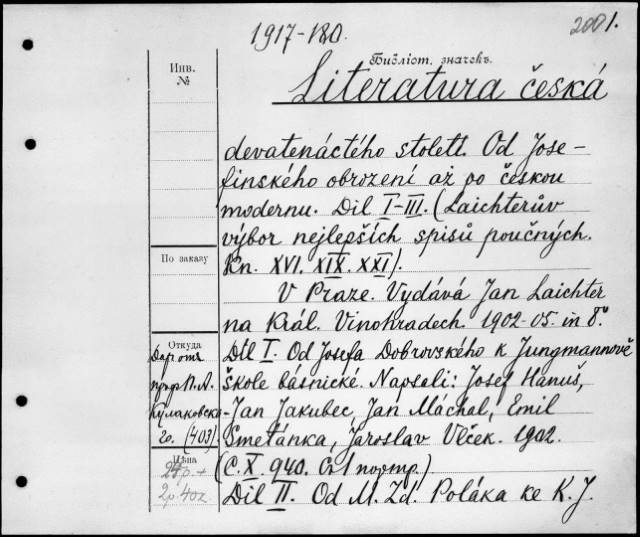 1917-180.
2001.
Библіот. значекъ.
Инв.
№
Literatura česká
devatenáctého stoletī. Od Jose-
finského obrození až po českou
modernu. Díl I-III. (Laichterův
výbor nejlepších spisů poučných.
Kn. XVI. XIX. XXI).
По заказу
V Praze. Vydává Jan Laichter
na Král. Vinohradech. 1902-05. in 8º
Откуда
Даръ отъ
проф. П. А.
Кулаковска-
го. (403)
Díl I. Od Josefa Dobrovského k Jungmannově
škole básnické. Napsali: Josef Hanuš,
Jan Jakubec, Jan Máchal, Emil
Smetánka, Jaroslav Vlček. 1902.
Цѣна
2р. 40к
(С. X. 940. Съ 1 портр.)
Díl II. Od M. Zd. Poláka ke K. J.